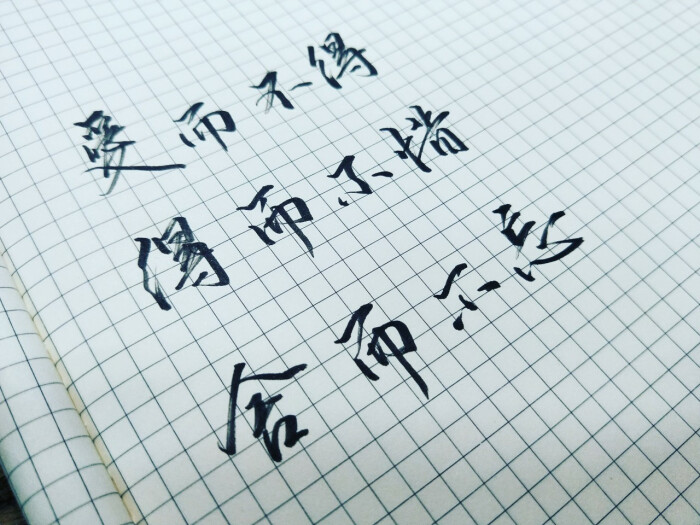 爱而不得
得而不惜
舍而不忘